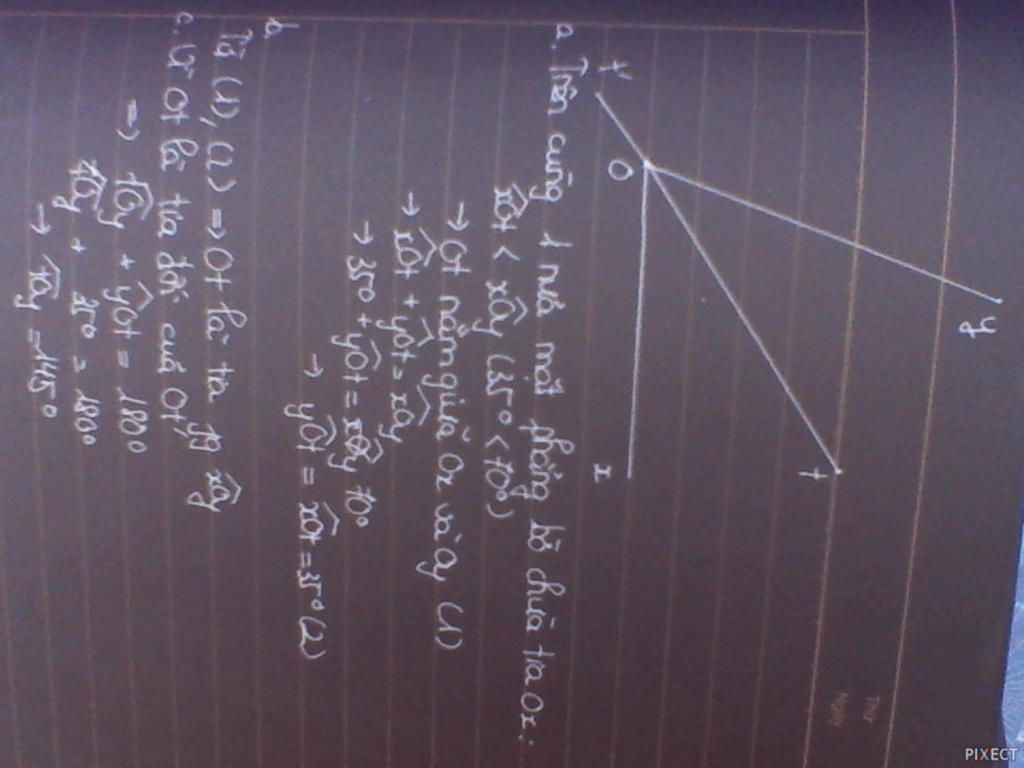 y
t
t'
O
x
a. Trên cùng 1 nửa mặt phẳng bờ chứa tia Ox:
xÔt < xÔy (35° < 70°)
→ Ot nằm giữa Ox và Oy (1)
→ xÔt + yÔt = xÔy
→ 35° + yÔt = 70°
→ yÔt = xÔt = 35° (2)
b.
Từ (1), (2) => Ot là tia xÔy
c. Vì Ot là tia đối của Ot'
=> t'Ôy + yÔt = 180°
t'Ôy + 35° = 180°
→ t'Ôy = 145°
Thứ
Ngày
PIXECT